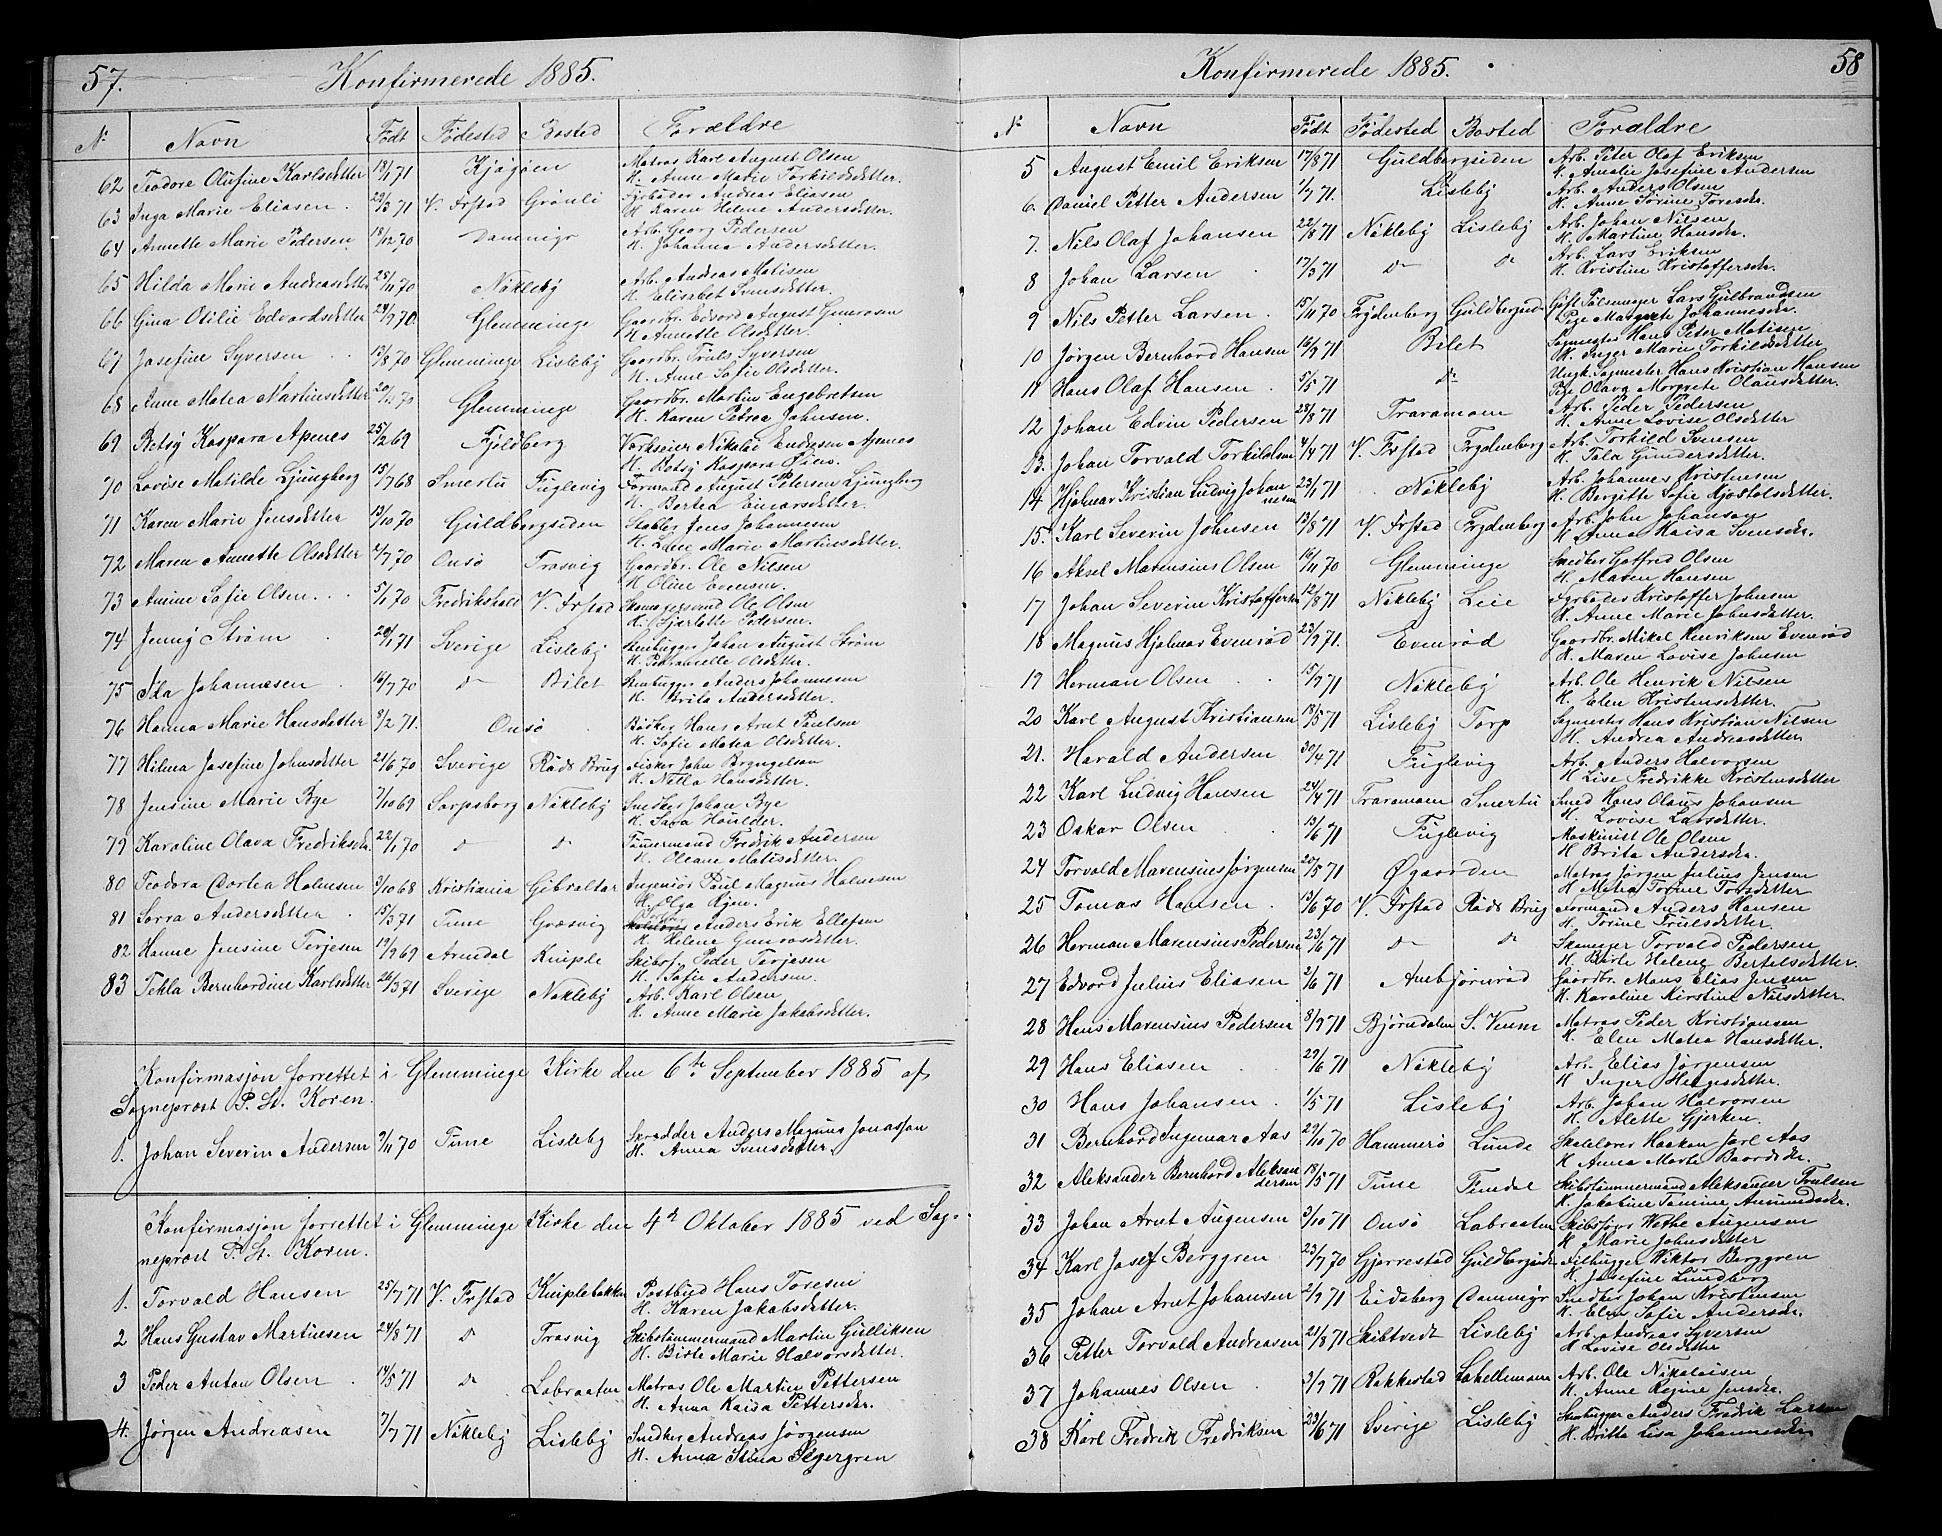 57. Konfirmerede 1885.
No Navn Født Fødested Bosted Forældre
62 Teodore Olufine Karlsdatter 18/1 71 Kjøgøen Matros Karl August Olsen
H. Anne Marie Torkildsdatter.
63 Inga Marie Eliasen 29/3 71 V. Frstad Grønli Fyrbøder Andreas Eliasen
H. Karen Helene Andersdatter.
64 Annette Marie Pedersen 18/12 70 Dammigr Arb. Georg Pedersen
H. Johanna Andersdatter.
65 Hilda Marie Andreasdatter 28/11 70 Nøkleby Arb. Andreas Matisen
H. Elisabet Svensdatter.
66 Gina Otilie Edvardsdatter 24/9 70. Glemminge Gaardbr. Edvard August Gunrosen
H. Annette Olsdatter.
67 Josefine Syversen 13/8 70 Glemminge Lisleby Gaardbr. Truls Syversen
H. Anne Sofie Olsdatter.
68 Anne Matea Martinsdatter 20/12 70 Glemminge Gaardbr. Martin Engebretsen
H. Karen Petrea Johnsen.
69 Betsy Kaspara Apenes 25/2 69 Fjeldberg Verkseier Nikolai Endresen Apenes
H. Betsy Kaspara
70 Lovise Matilde Ljungberg 15/7 68 Smertu Fuglevig Formand August Petersen Ljungberg
H. Bertea Einarsdatter.
71 Karen Marie Jensdatter 13/10 70 Guldbergsiden Stabler Jens Johannesen
H. Lene Marie Martinsdatter.
72 Maren Annette Olsdatter 2/7 70 Onsø Trosvig Gaardbr. Ole Nilsen
H. Oline Evensen.
73 Amine Sofie Olsen 5/1 70 Fredrikshald V. Frstad Skomagersvend Ole Olsen
H. Sjarlotte Pedersen.
74 Jenny Strøm 28/1 71 Sverige Lisleby Stenhugger Johan August Strøm
H. Petronelle Olsdatter.
75 Ida Johannesen 16/7 70 do Bilet Stenhugger Anders Johannesen
H. Brita Andersdatter.
76 Hanna Marie Hansdatter 8/2 71. Onsø Bødker Hans Arnt Paulsen
H. Sofie Matea Olsdatter.
77 Hilma Josefine Johnsdatter 21/6 70 Sverige Røds Brug Fisker John Bryngelsen
H. Netta Hansdatter.
78 Jensine Marie Bye 7/10 69 Sarpsborg Nøkleby Snedker Johan Bye
H. Sara Houlder.
79 Karoline Olava Fredriksdr. 22/1 70 do do Tømmermand Fredrik Andersen
H. Oleane Matisdatter.
80 Teodora Dortea Holmsen 3/10 68 Kristiania Gibraltar Ingeniør Poul Magnus Holmsen
H. Olga Kjær.
81 Sarra Andersdatter 15/3 71 Tune Græsvig Anders Erik Ellefsen
H. Helene Gunrosdatter.
82 Hanne Jensine Terjesen 19/9 69 Arendal Kniple Skibsf. Peder Terjesen
H. Sofie Andersen
83 Tekla Bernhardine Karlsdatter 26/3 71 Sverige Nøkleby Arb. Karl Olsen
H. Anne Marie Jakobsdatter.
Konfirmasjon forrettet i Glemminge Kirke den 6te September 1885 af
Sogneprost P. St. Koren.
1. Johan Severin Andersen 9/11 70 Tune Lisleby Skrædder Anders Magnus Jonassen
H. Anna Svensdatter.
Konfirmasjon forrettet i Glemminge Kirke den 4de Oktober 1885 ved Sog-
neprost P. St. Koren.
1. Torvald Hansen 25/7 71 V. Frstad Kniplebakken Postbud Hans Toresen
H. Karen Jakobsdatter.
2 Hans Gustav Martinsen 24/8 71 do Trosvig Skibstømmermand Martin Gulliksen
H. Birte Marie Halvorsdatter.
3 Peder Anton Olsen 14/5 71 do Labraaten Matros Ole Martin Pettersen
H. Anna Kaisa Pettersdr.
4. Jørgen Andreasen 7/7 71 Nøkleby Lisleby Snedker Andreas Jørgensen
H. Anna Stina Segergren
Konfirmerede 1885. 58
No Navn Født Fødested Bosted Forældre
5 August Emil Eriksen 17/8 71 Guldbergsiden Arb. Peter Olaf Eriksen
H. Amalie Josefine Andersen
6. Daniel Petter Andersen 1/7 71. Lisleby Arb. Anders Olsen
H. Anne Torine Toresdr.
7. Nils Olaf Johansen 22/8 71 Nøkleby Lisleby Arb. Johan Nilsen
H. Martine Hansdr.
8 Johan Larsen 17/3 71 do do Arb. Lars Eriksen
H. Kristine Kristoffersdr.
9 Nils Petter Larsen 15/11 70 Frydenberg Guldbergsid. Gift Pølsemager Lars Gulbrandsen
Pige Margrete Johannesdr.
10 Jørgen Bernhard Hansen 16/9 71 Bilet Sagmester Hans Peter Matisen
H. Inger Marie Torkildsdatter
11 Hans Olaf Hansen 5/5 71 do Ungk. Sagmester Hans Kristian Hansen
Pige Olava Margrete Olausdatter.
12 Johan Edvin Pedersen 28/8 71 Traramoen Arb. Peder Pedersen
H. Anne Lovise Olsdatter
13. Johan Torvald Torkildsen 4/4 71 V. Frstad Frydenberg Arb. Torkild Svensen
H. Pela Gundersdatter.
14 Hjalmar Kristian Ludvig Johan
nesen 23/1 71 Nøkleby Arb. Johannes Kristensen
H. Bergitte Sofie Kjostolsdatter.
15. Karl Severin Johnsen 13/8 71 V. Frstad Frydenberg Arb. John Johansen
H. Anna Kaisa Svensdr.
16 Aksel Marensius Olsen 16/11 70 Glemminge Snedker Gotfred Olsen
H. Maren Hansen
17 Johan Severin Kristoffersen 12/8 71 Nøkleby Leie Fyrbøder Kristoffer Johnsen
H. Anne Marie Johnsdatter.
18 Magnus Hjalmar Evenrød 23/9 71. Evenrød Gaardbr. Mikal Henriksen Evenrød
H. Maren Lovise Johnsen
19 Herman Olsen 15/9 71 Nøkleby Arb. Ole Henrik Nilsen
H. Elen Kristensdatter.
20 Karl August Kristiansen 18/5 71 Lisleby Torp Sagmester Hans Kristian Nilsen
H. Andrea Andreasdatter.
21. Harald Andersen 30/4 71 Fuglevig Arb. Anders Halvorsen
H Lise Fredrikke Kristensdatter
22 Karl Ludvig Hansen 24/4 71 Traramoen Smertu Smed Hans Olaus Johansen
H. Lovise Larsdatter.
23 Oskar Olsen 13/6 71 Fuglevig Maskinist Ole Olsen
H Brita Andersdr.
24 Torvald Marensius Jørgensen 20/5 71 Øgaarden Matros Jørgen Julius Jensen
H Matea Torine Torsdatter
25 Tomas Hansen 13/6 70 V. Frstad Røds Brug Formand Anders Hansen
H. Torine Trulsdatter.
26 Herman Marensius Pedersen 23/6 71 do do Skomager Torvald Pedersen
H. Birte Helene Bertelsdatter.
27 Edvard Julius Eliasen 2/6 71 Ambjørnrød Gaardbr. Mons Elias Jensen
H. Karoline Kirstine Nilsdatter.
28 Hans Marensius Pedersen 8/9 71 Bjørndalen S. Venm Matros Peder Kristiansen
H. Elen Matea Hansdatter.
29 Hans Eliasen 29/6 71 Nøkleby Arb. Elias Jørgensen
H Inger Helgesdatter.
30 Hans Johansen 1/5 71 Lisleby Arb. Johan Halvorsen
H. Alette Gjerken.
31 Bernhard Ingemar Aas 29/10 70 Hammerø Lunde Skolelærer Haakon Jarl Aas
H Anna Marta Baardsdr.
32 Aleksander Bernhard Aleksan
dersen 18/5 71 Tune Lundal Skibstømmermand Aleksander Trulsen
H. Jakobine Tomine Amundsdr.
33 Johan Arnt Augensen 3/10 71 Onsø Labraaten Skibsfører Hethe Augensen
H Marie Johnsdatter
34 Karl Josef Berggren 23/7 70 Gjerrestad Guldbergsiden Filhugger Viktor Berggren
H. Josefine Lundberg
35 Johan Arnt Johansen 2/9 71 Eidsberg Dammigr Snedker Johan Kristensen
H. Elen Sofie Andersdr.
36 Petter Torvald Andreasen 21/8 71 Skibtvedt Lisleby Arb. Andreas Syversen
H Lovise Olsdatter
37 Johannes Olsen 3/9 71 Rakkestad Labellemoen Arb. Ole Nikolaisen
H. Anne Regine Jensdr.
38 Karl Fredrik Fredriksen 23/6 71 Sverige Lisleby Stenhugger Anders Fredrik Larsen
H. Britta Lisa Johannesdr